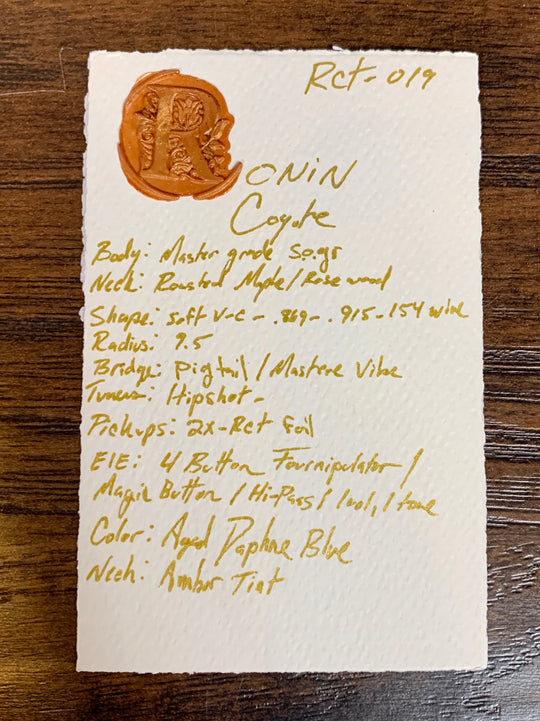 Rct-019
RONiN
Coyote
Body: Master grade So.gr
Neck: Roasted Maple/Rosewood
Shape: soft V-C - .869 - .915 - 1.54 wide
Radius: 9.5
Bridge: Pigtail / Mastere Vibe
Tuners: Hipshot -
Pickups: 2x-Rct Foil
E/E: 4 Button Fournipulator /
Magic Button / Hi-Pass / 1vol, 1 tone
Color: Aged Daphne Blue
Neck: Amber Tint